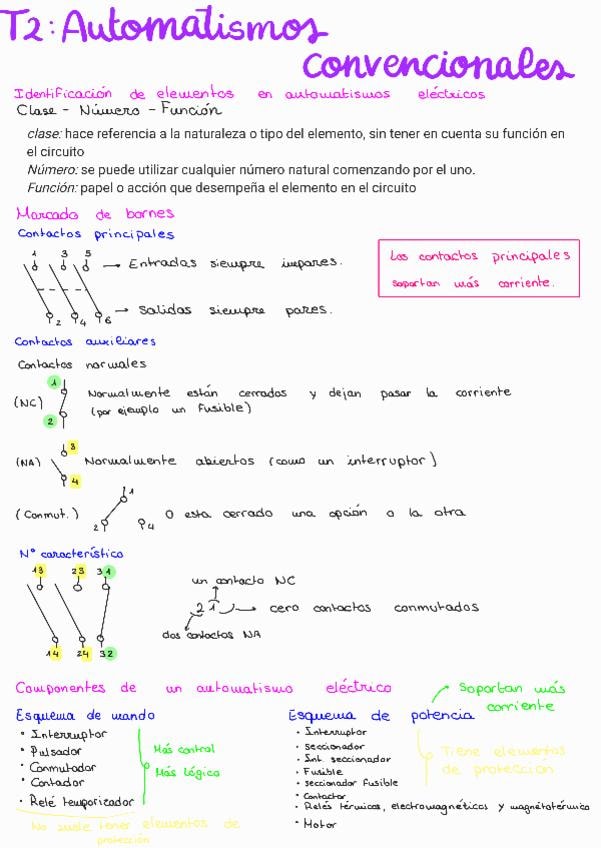 T2: Automatismos
convencionales
Identificación de elementos en automatismos eléctricos
Clase - Número - Función
clase: hace referencia a la naturaleza o tipo del elemento, sin tener en cuenta su función en
el circuito
Número: se puede utilizar cualquier número natural comenzando por el uno.
Función: papel o acción que desempeña el elemento en el circuito
Marcado de bornes
Contactos principales
1 3 5
→ Entradas siempre impares.
Los contactos principales
soportan más corriente.
→ Salidas siempre pares.
2 4 6
Contactos auxiliares
Contactos normales
1
(NC)
2
Normalmente están cerrados y dejan pasar la corriente
(por ejemplo un fusible)
3
(NA) Normalmente abiertos (como un interruptor)
4
1
(Conmut.) O esta cerrado una opción o la otra
2 4
Nº característico
13 23 31
un contacto NC
21 → cero contactos conmutados
dos contactos NA
14 24 32
Componentes de un automatismo eléctrico
Soportan más
corriente
Esquema de mando
• Interruptor
• Pulsador
• Conmutador
• Contador
• Relé temporizador
Más control
Más lógica
No suele tener elementos de
protección
Esquema de potencia
• Interruptor
• Seccionador
• Int. seccionador
• Fusible
• seccionador fusible
• Contactor
• Relés térmicos, electromagnéticos y magnetotérmico
• Motor
Tiene elementos
de protección